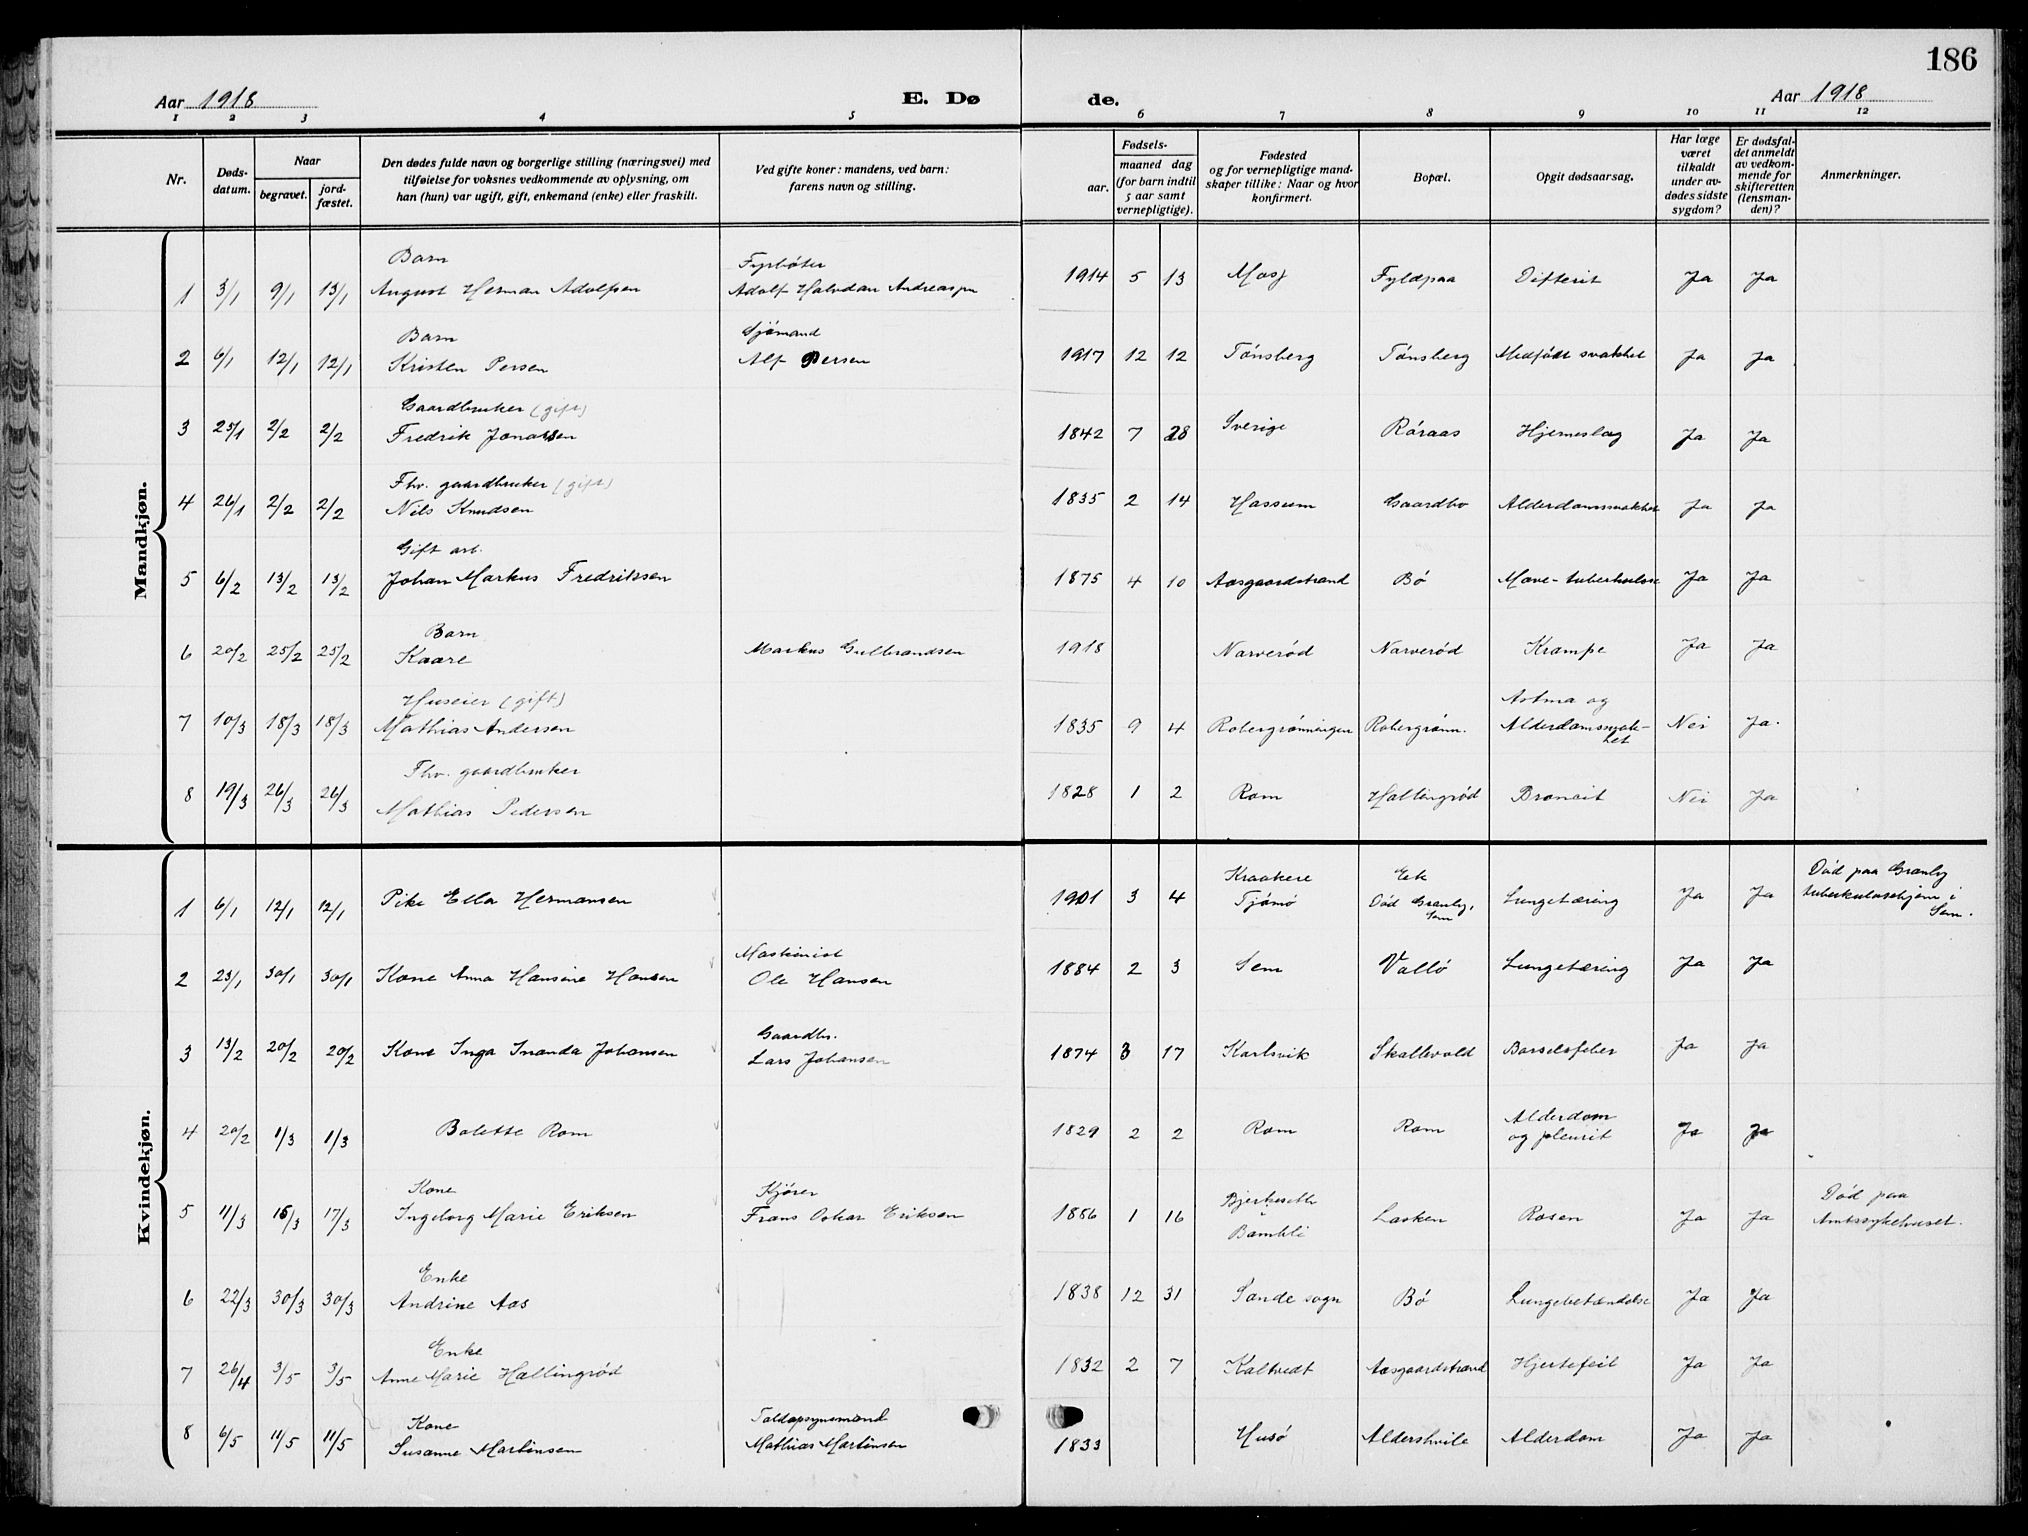 186
Aar 1918
E. Dø
de.
Aar 1918
1 2 3 4 5 6 7 8 9 10 11 12
Nr.
Døds-
datum.
Naar
begravet.
jord-
fæstet.
Den dødes fulde navn og borgerlige stilling (næringsvei) med
tilføielse for voksnes vedkommende av oplysning, om
han (hun) var ugift, gift, enkemand (enke) eller fraskilt.
Ved gifte koner: mandens, ved barn:
farens navn og stilling.
Fødsels-
aar.
maaned dag
(for barn indtil
5 aar samt
vernepligtige).
Fødested
og for vernepligtige mand-
skaper tillike: Naar og hvor
konfirmert.
Bopæl.
Opgit dødsaarsag.
Har læge
været
tilkaldt
under av-
dødes sidste
sygdom?
Er dødsfal-
det anmeldt
av vedkom-
mende for
skifteretten
(lensman-
den)?
Anmerkninger.
Mandkjøn.
Barn Fyrbøter
1 3/1 9/1 13/1 August Herman Adolfsen Adolf Halvdan Andreassen 1914 5 13 Moss Fyldpaa Difterit Ja Ja
Barn Sjømand
2 6/1 12/1 12/1 Kristen Persen Alf Persen 1917 12 12 Tønsberg Tønsberg Medfødt svakhet Ja Ja
Gaardbruker (gift)
3 25/1 2/2 2/2 Fredrik Jonassen 1842 7 28 Sverige Røraas Hjerneslag Ja Ja
Fhv. gaardbruker (gift)
4 26/1 2/2 2/2 Nils Knudsen 1835 2 14 Hassum Gaardbo Alderdomssvakhet Ja Ja
Gift arb.
5 6/2 13/2 13/2 Johan Markus Fredriksen 1875 4 10 Aasgaardstrand Bø Mave-tuberkulose Ja Ja
Barn
6 20/2 25/2 25/2 Kaare Markus Gulbrandsen 1918 Narverød Narverød Krampe Ja Ja
Huseier (gift) Astma og
7 10/3 18/3 18/3 Mathias Andersen 1835 9 4 Robergrønningen Robergrønn. Alderdomssvak- Nei Ja.
het
Fhv. gaardbruker
8 19/3 26/3 26/3 Mathias Pedersen 1828 1 2 Rom Hallingrød Bronait Nei Ja
Kvindekjøn.
Kraakere Eik Død paa Granly
1 6/1 12/1 12/1 Pike Ella Hermansen 1901 3 4 Tjømø Død Granly, Lungetæring Ja Ja tuberkulosehjem i
Sem Sem.
Maskinist
2 23/1 30/1 30/1 Kone Anna Hansine Hansen Ole Hansen 1884 2 3 Sem Vallø Lungetæring Ja Ja
Gaardbr.
3 13/2 20/2 20/2 Kone Inga Inanda Johansen Lars Johansen 1874 3 17 Karlsvik Skallevold Barselsfeber Ja Ja
Alderdom
4 20/2 1/3 1/3 Bolette Rom 1829 2 2 Rom Rom og pleurit Ja Ja
Kone Kjører Død paa
5 11/3 15/3 17/3 Ingeborg Marie Eriksen Frans Oskar Eriksen 1886 1 16 i Lasken Rosen Ja Ja Amtssykehuset.
Bamble
Enke
6 22/3 30/3 30/3 Andrine Aas 1838 12 31 Sande sogn Bø Lungebetændelse Ja Ja
Enke
7 26/4 3/5 3/5 Anne Marie Hallingrød 1832 2 7 Kaltvedt Aasgaardstrand Hjertefeil Ja Ja
Kone Toldopsynsmand
8 6/5 11/5 11/5 Susanne Martinsen Mathias Martinsen 1833 Husø Aldershvile Alderdom Ja Ja